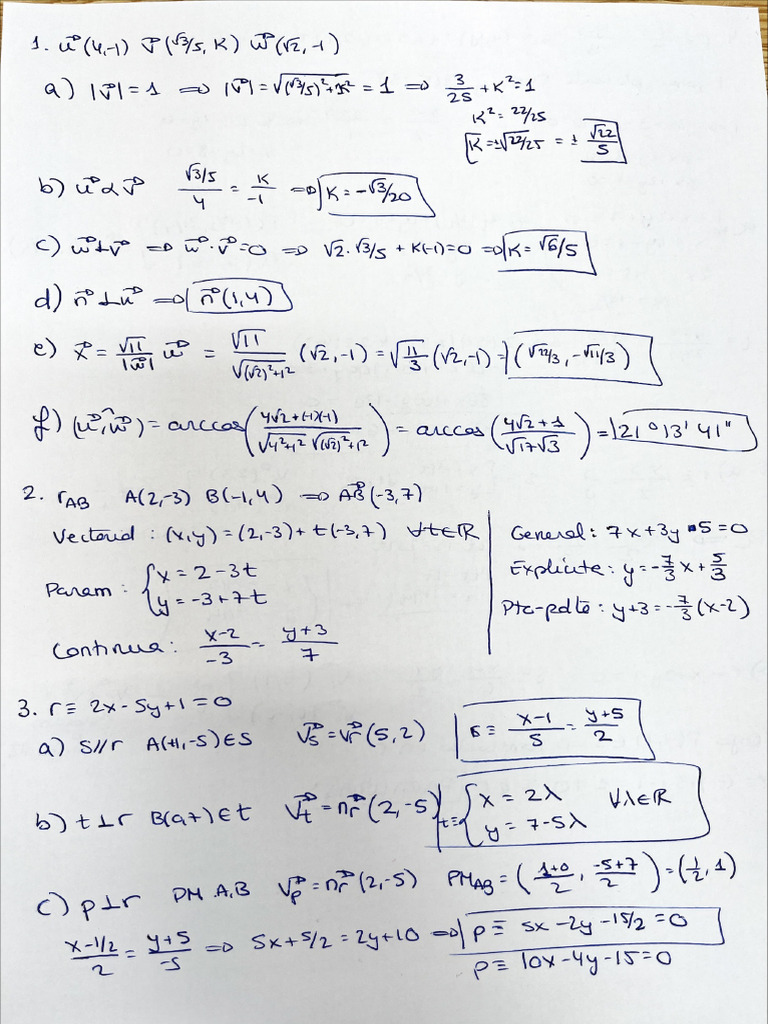 1. u⃗(4,-1) v⃗(√3/5, K) w⃗(√2,-1)
a) |v⃗|=1 ⇒ |v⃗|=√((√3/5)²+K²) = 1 ⇒ 3/25 + K²=1
K²= 22/25
K=±√22/25 = ± √22/5
b) u⃗ ∝ v⃗ (√3/5)/4 = K/-1 ⇒ K=-√3/20
c) w⃗⊥v⃗ ⇒ w⃗·v⃗=0 ⇒ √2·√3/5 + K(-1)=0 ⇒ K=√6/5
d) n⃗⊥u⃗ ⇒ n⃗(1,4)
e) x⃗ = √11/|w⃗| w⃗ = √11/√((√2)²+1²) (√2,-1) = √(11/3) (√2,-1) = (√22/3, -√11/3)
f) (u⃗,^w⃗) = arccos((4√2+(-1)(-1))/(√4²+1² √(√2)²+1²)) = arccos((4√2+1)/(√17√3)) = 21°13'41"
2. r_AB A(2,-3) B(-1,4) ⇒ AB⃗(-3,7)
Vectorial: (x,y)=(2,-3)+t(-3,7) ∀t∈ℝ
Param: { x = 2-3t
y = -3+7t
Continua: (x-2)/-3 = (y+3)/7
General: 7x+3y-5=0
Explícita: y=-7/3x+5/3
Pto-pdte: y+3=-7/3(x-2)
3. r≡ 2x-5y+1=0
a) s//r A(+1,-5)∈s v⃗s=v⃗r(5,2) s≡ (x-1)/5 = (y+5)/2
b) t⊥r B(0,7)∈t v⃗t=n⃗r(2,-5) t≡{ x = 2λ ∀λ∈ℝ
y = 7-5λ
c) p⊥r PM A,B v⃗p=n⃗r(2,-5) PM_AB=((1+0)/2, (-5+7)/2)=(1/2,1)
(x-1/2)/2 = (y+5)/-5 ⇒ 5x+5/2=2y+10 ⇒ p≡ 5x-2y-15/2=0
p≡ 10x-4y-15=0